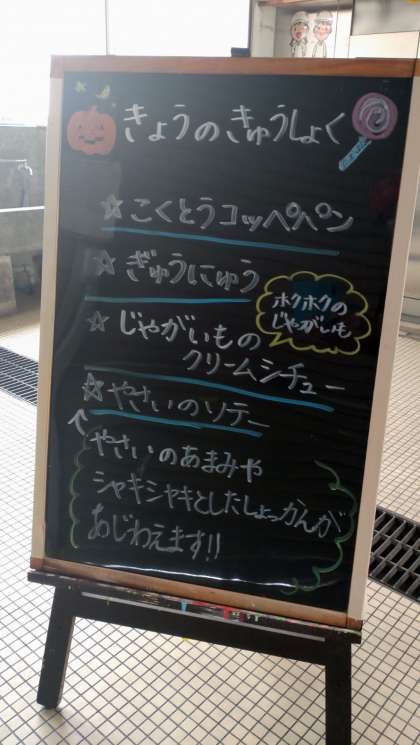 きょうのきゅうしょく
☆こくとうコッペパン
☆ぎゅうにゅう
ホクホクの
じゃがいも
☆じゃがいもの
クリームシチュー
☆やさいのソテー
↑やさいのあまみや
シャキシャキとしたしょっかんが
あじわえます!!